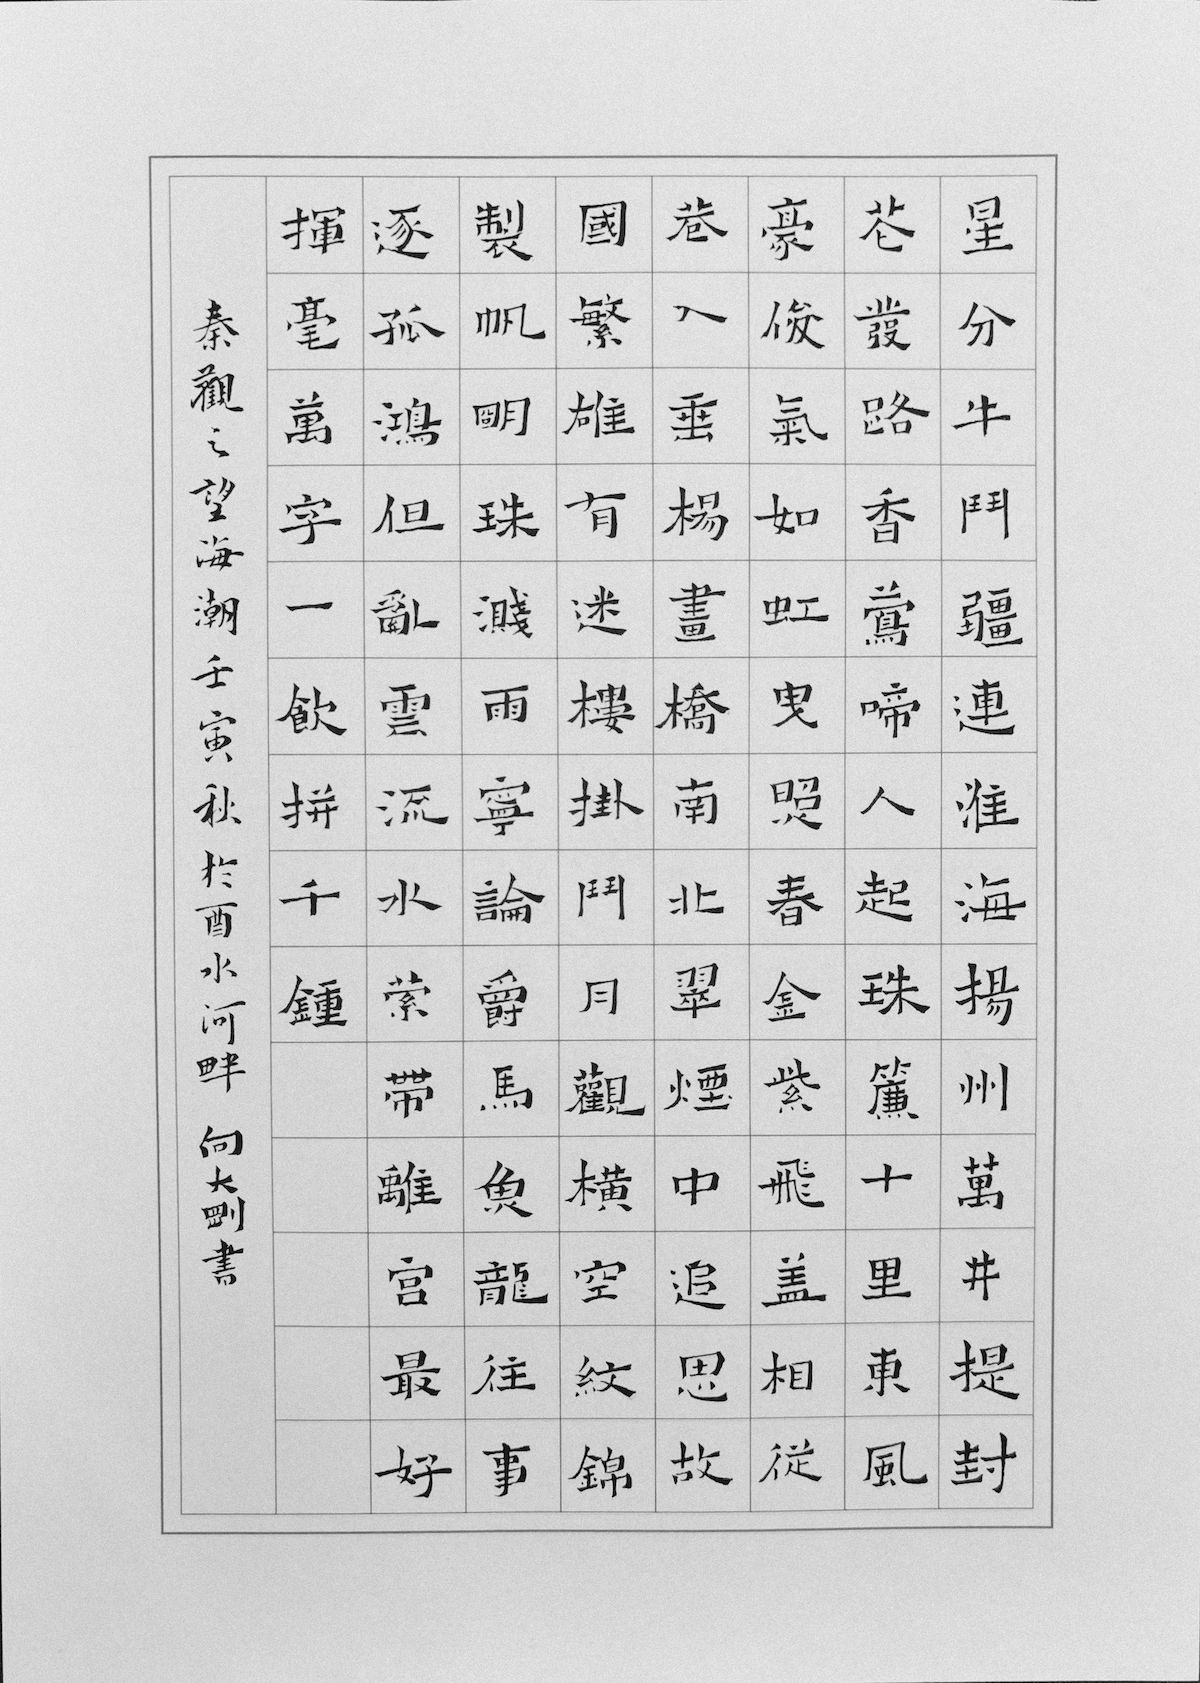 星分牛鬥疆連淮海揚州萬井提封
花發路香鶯啼人起珠簾十里東風
豪俊氣如虹曳照春金紫飛盖相從
巷入垂楊畫橋南北翠煙中追思故
國繁雄有迷樓掛鬥月觀橫空紋錦
製帆明珠濺雨寧論爵馬魚龍往事
逐孤鴻但亂雲流水萦帶離宮最好
揮毫萬字一飲拼千鍾
秦觀之望海潮壬寅秋於酉水河畔 向大剛書